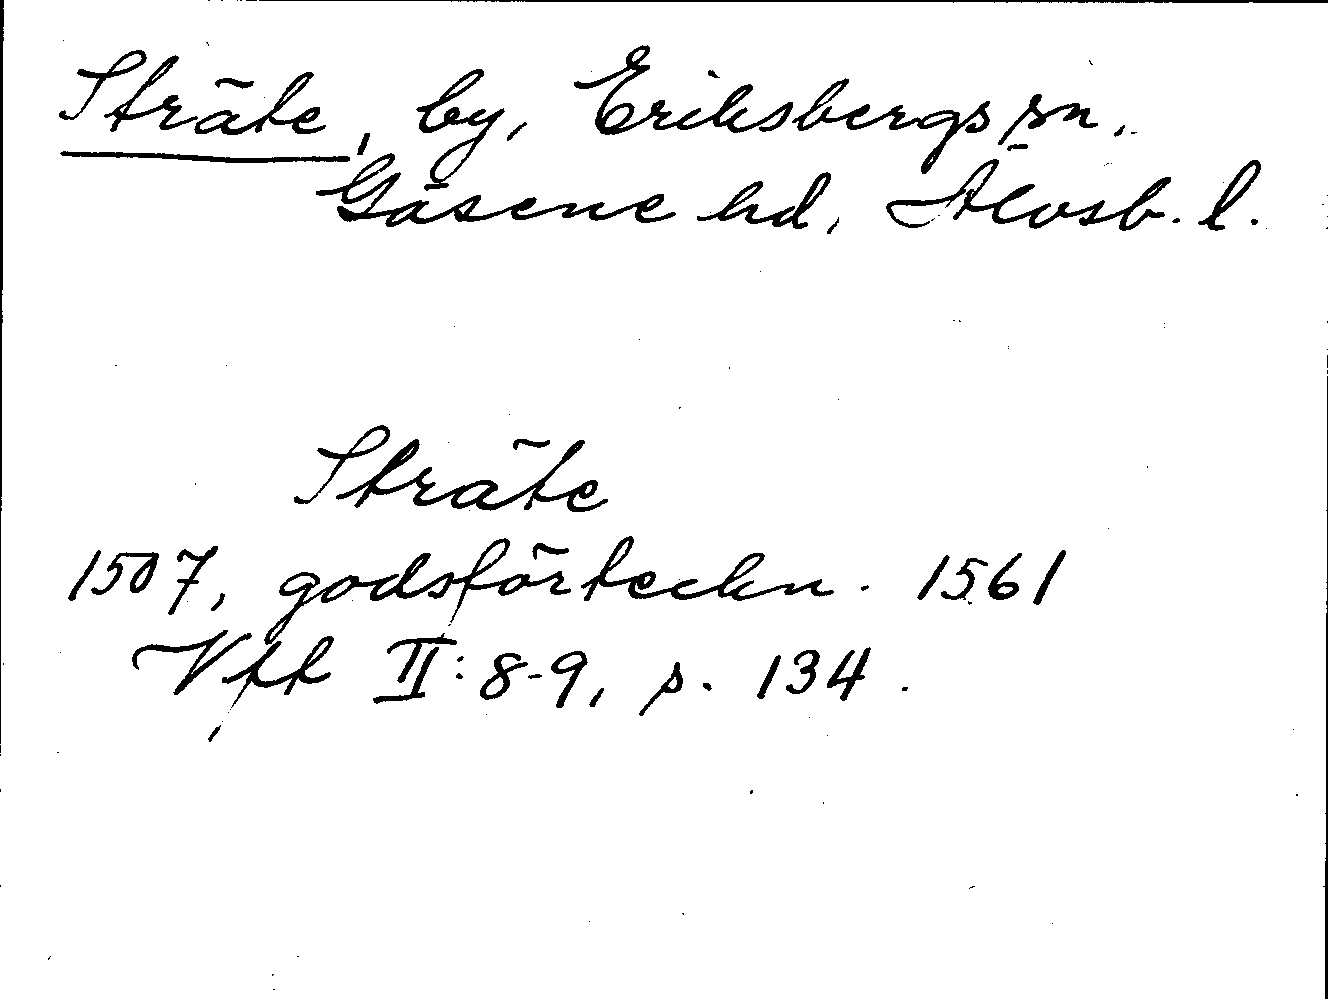 Sträte, by, Eriksbergs sn,
Gäsene hd, Älvsb. l.
Sträte
1507, godsförteckn. 1561
Vff II: 8-9, s. 134.